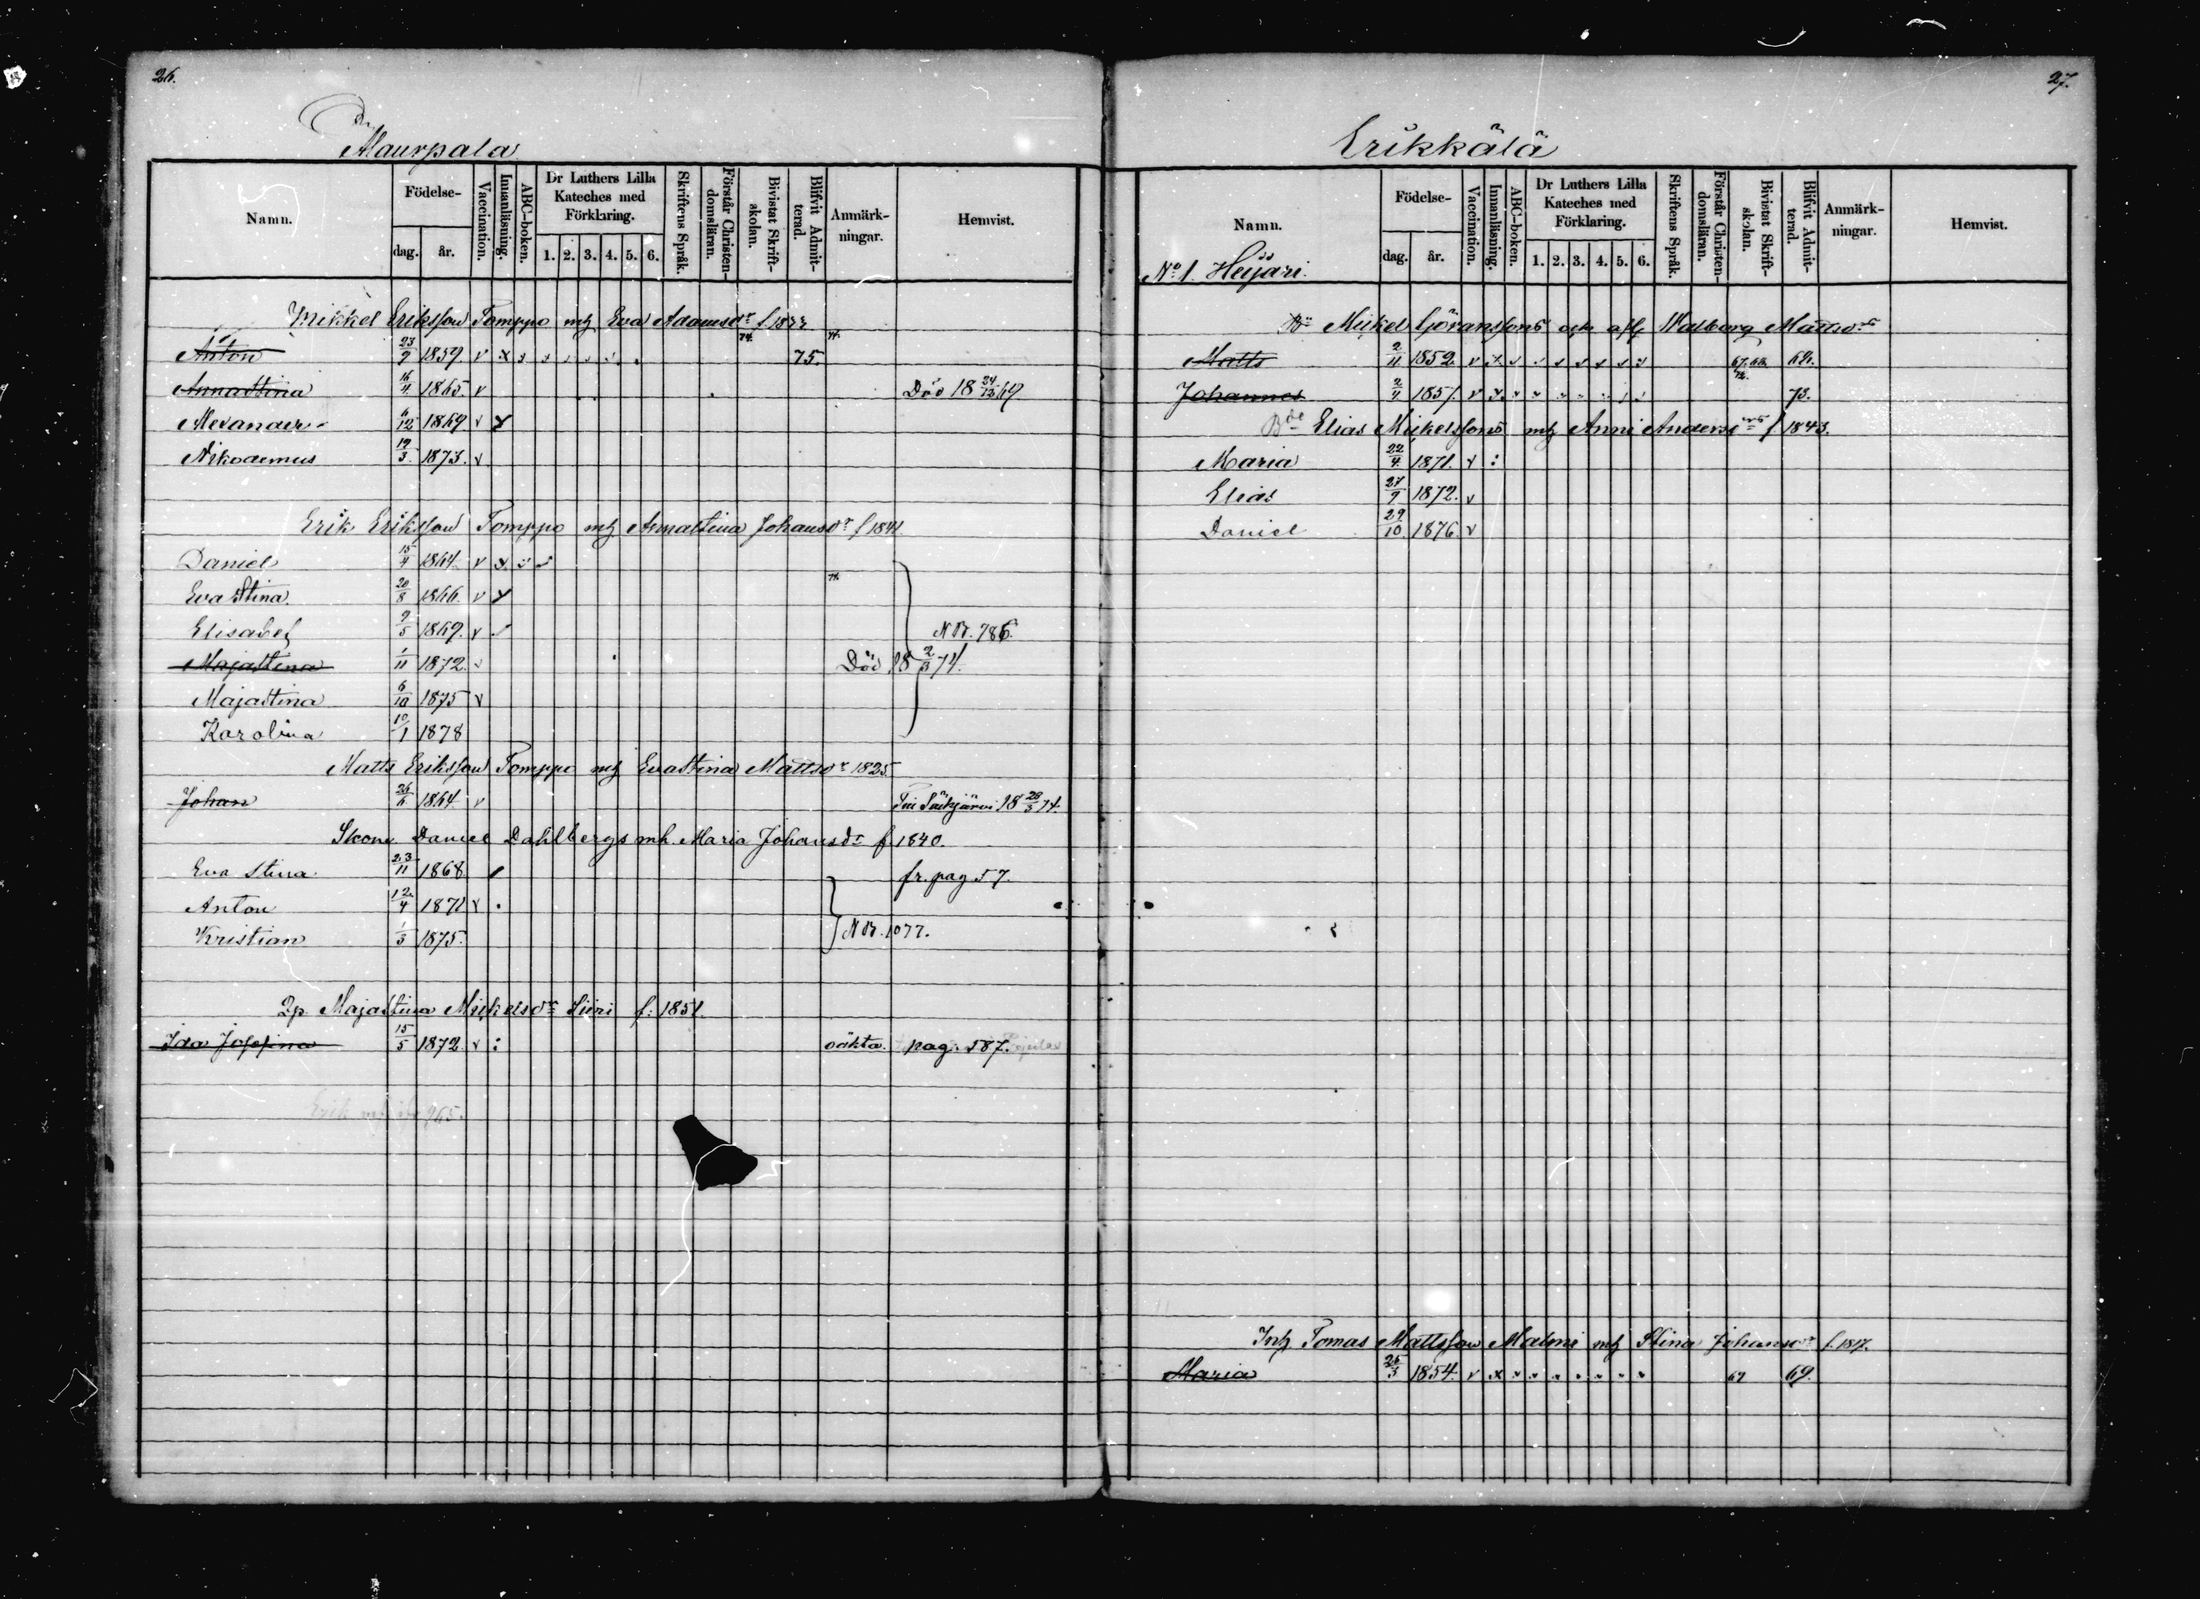 26.
Maurpala
Namn.
Födelse-
dag. år.
Vaccination.
Innanläsning.
ABC-boken.
Dr Luthers Lilla Kateches med Förklaring.
1. 2. 3. 4. 5. 6.
Skriftens Språk.
Förstår Christen-domsläran.
Bivistat Skrift-skolan.
Blifvit Admit-terad.
Anmärk-ningar.
Hemvist.
Mikkel Eriksson Tomppo mh Eva Adamsdr
74.
Anton 23/9 1859. v x 75.
Annastina 16/4 1865. v Död 18 24/12 69
Alexander 6/12 1869 v x
Nikodemus 19/3 1873. v
Erik Eriksson Tomppo mh Annastina Johansdr f 1841.
Daniel 15/4 1864. v x
Eva Stina 20/8 1866. v x
Elisabet 9/5 1869. v NB. 786.
Majastina 1/11 1872. Död 18 2/3 74.
Majastina 6/10 1875 v
Karolina 10/1 1878
Matts Eriksson Tomppo mh Evastina Mattsdr 1825
Johan 26/6 1864 v Säkjärvi 18 28/3 74.
Skom. Daniel Dahlbergs mh. Maria Johansdr f 1840.
Eva Stina 23/11 1868. fr. pag 57.
Anton 12/4 1871 v
Kristian 1/3 1875. NB. 1077.
Qp. Majastina Mikelsdr Siiri f. 1851.
Ida Josefina 15/5 1872. v : oäkta. pag. 587.
27.
Erikkälä
Namn.
Födelse-
dag. år.
Vaccination.
Innanläsning.
ABC-boken.
Dr Luthers Lilla Kateches med Förklaring.
1. 2. 3. 4. 5. 6.
Skriftens Språk.
Förstår Christen-domsläran.
Bivistat Skrift-skolan.
Blifvit Admit-terad.
Anmärk-ningar.
Hemvist.
No 1. Heijari.
Mikel Göranssons och afl. Walborg Mattsdr
Matts 2/11 1852. v 68.
Johannes 2/4 1857. v x 73.
Bde Elias Mikelssons mh Anni Andersdr f 1843.
Maria 22/4 1871. v :
Elias 27/9 1872. v
Daniel 29/10 1876. v
Inh Tomas Mattsson Malmi mh Stina Johansdr f. 1817.
Maria 26/3 1854. v x 69 69.